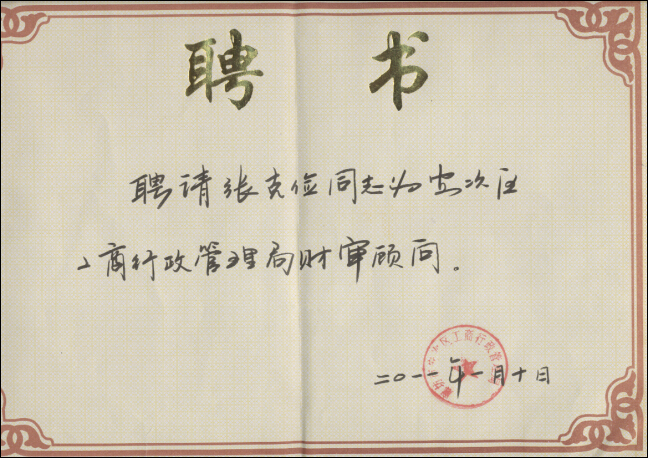 聘书
聘请张克俭同志为坊次区
工商行政管理局财审顾问。
区工商行政管
二〇一一年一月十日